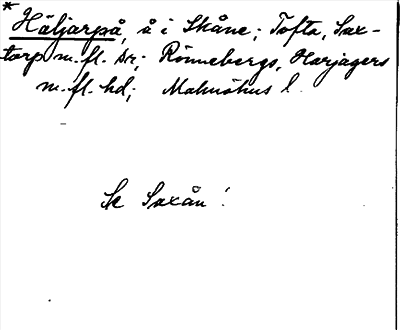 * Häljarpå, å i Skåne; Tofta, Sax-
torp m.fl. sr; Rönnebergs, Harjagers
m.fl. hd; Malmöhus l.
Se Saxån!